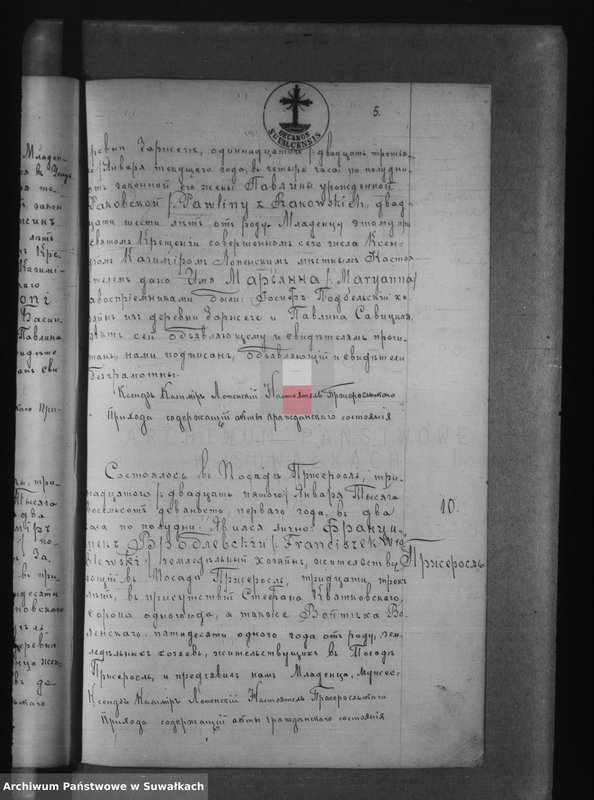 5.
DECANUS SUVALCENSIS
деревни Заржеги, одиннадцатого /: двадцать третья-
го/ Января текущего года, въ четыре часа по полудни
отъ законной его жены Павлины урожденной
Раковской /: Pawliny z Rakowskich, двад-
цати шести лѣтъ отъ роду. Младенцу этому при
святомъ Крещеніи совершенномъ сего числа Ксен-
дзомъ Казиміромъ Лопенскимъ мѣстнымъ Настоя-
телемъ дано Имя Марьянна /: Maryanna/
а воспріемниками были: Іосифъ Подбельскій хо-
зяинъ изъ деревни Заржеге и Павлина Савицкая.
Актъ сей объявляющему и свидѣтелямъ прочи-
танъ, нами подписанъ, объявляющій и свидѣтели
безграмотны.
Ксендзъ Казиміръ Лопенскій Настоятель Пржеросльскаго
Прихода содержащій акты гражданскаго состоянія
ARCHIWUM PAŃSTWOWE
W SUWAŁKACH
Состоялось въ Посадѣ Пржеросль, три-
надцатого /: двадцать пятого/ Января Тысяча
восемьсотъ девяносто перваго года, въ два
часа по полудни. Явился лично: Францы-
шекъ Врублевскій /: Franciszek Wró-
blewski/ земледѣльный хозяинъ, жительству-
ющій въ Посадѣ Пржеросль, тридцати трехъ
лѣтъ, въ присутствіи Стефана Квятковскаго,
сорока одного года, а также Войтѣха Во-
ленскаго, пятидесяти одного года отъ роду, зем-
ледѣльныхъ хозяевъ, жительствующихъ въ Посадѣ
Пржеросль, и предъявилъ намъ Младенца, Мужес-
Ксендзъ Казиміръ Лопенскій Настоятель Пржеросльскаго
Прихода содержащій акты гражданскаго состоянія
10.
Пржеросль
Archiwum Państwowe w Suwałkach